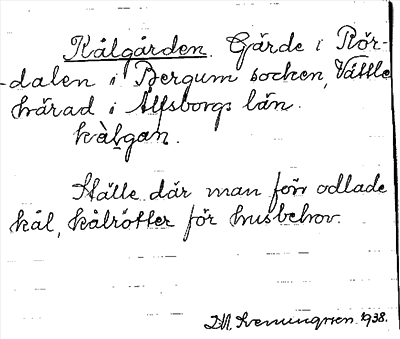 Kålgården. Gärde i Rör-
dalen i Bergum socken, Vättle
härad i Älfsborgs län.
kàlgan.
Ställe där man förr odlade
kål, kålrötter för husbehov.
1938.